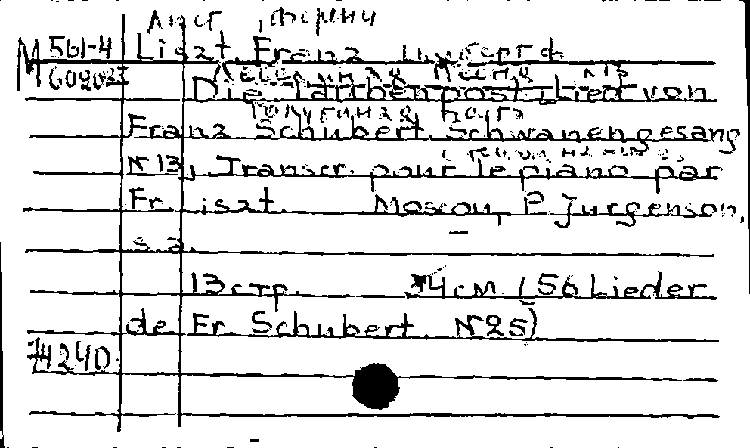 Лист , Ференц
М 561-4 Liszt, Franz
60202 Die Taubenpost. Lied von
Голубиная почта
Franz Schubert. Schwanengesang
№ 13, Transcr. pour le piano par
Fr. Liszt. Moscou, P. Jurgenson,
s.a.
13 стр. 34 см (56 Lieder
de Fr. Schubert. № 25)
74240